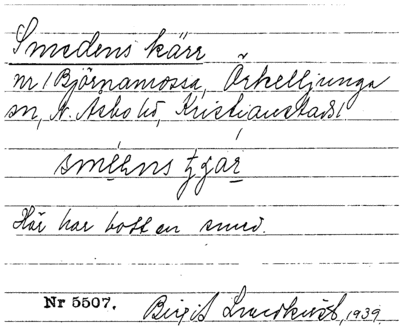 Smedens kärr
nr 1 Björnamossa, Örkelljunga
sn, N. Åsbo hd, Kristianstads l
sméens
Här har bott en smed.
Nr 5507. Birgit Lundkvist, 1939